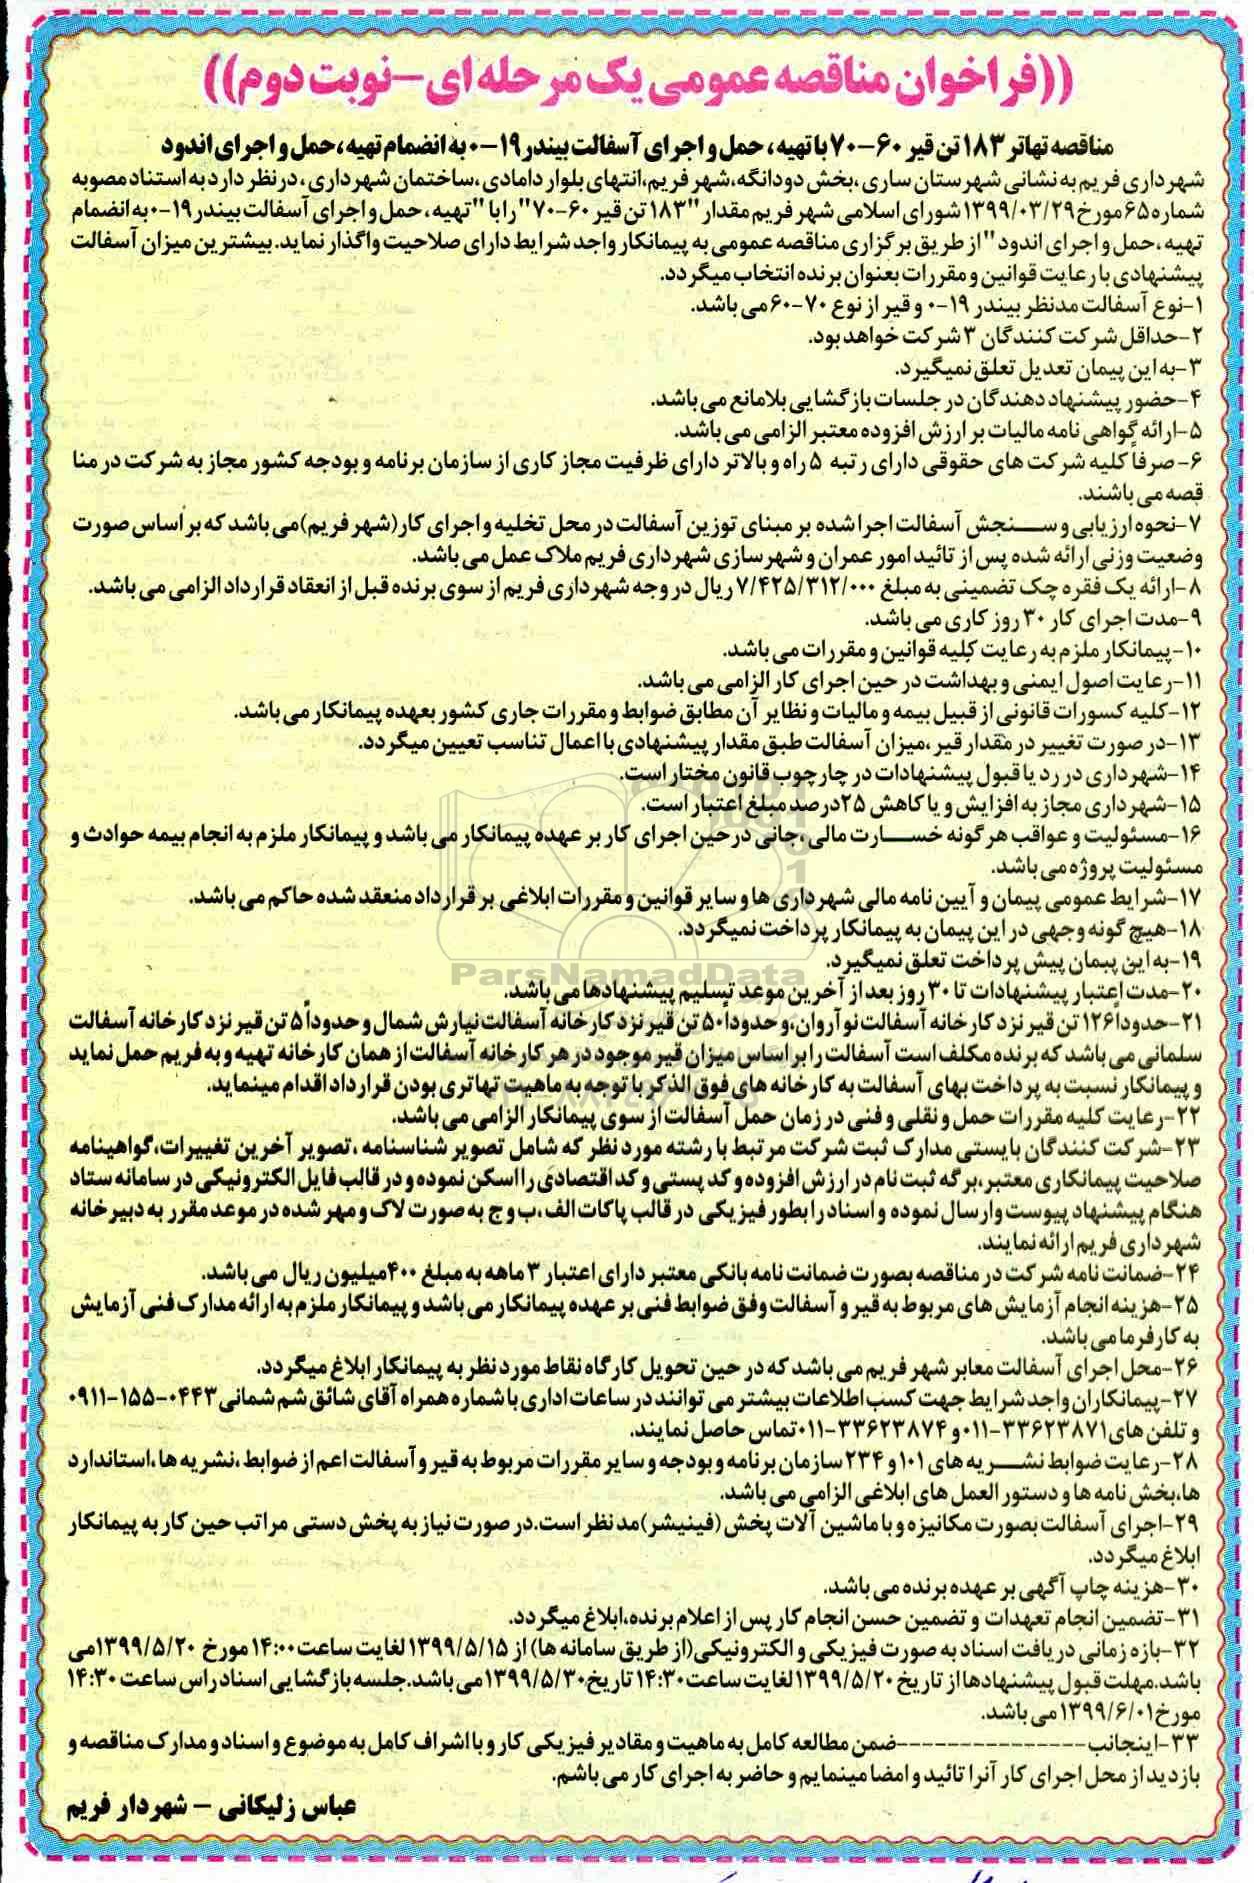 ((فراخوان مناقصه عمومی یک مرحله ای-نوبت دوم))
مناقصه تهاتر ۱۸۳ تن قیر ۶۰-۷۰ با تهیه، حمل و اجرای آسفالت بیندر ۱۹-۰ به انضمام تهیه، حمل و اجرای اندود
شهرداری فریم به نشانی شهرستان ساری، بخش دودانگه، شهر فریم، انتهای بلوار دامادی، ساختمان شهرداری، در نظر دارد به استناد مصوبه
شماره ۶۵ مورخ ۱۳۹۹/۰۳/۲۹ شورای اسلامی شهر فریم مقدار "۱۸۳ تن قیر ۶۰-۷۰" را با "تهیه، حمل و اجرای آسفالت بیندر ۱۹-۰ به انضمام
تهیه، حمل و اجرای اندود" از طریق برگزاری مناقصه عمومی به پیمانکار واجد شرایط دارای صلاحیت واگذار نماید. بیشترین میزان آسفالت
پیشنهادی با رعایت قوانین و مقررات بعنوان برنده انتخاب میگردد.
۱-نوع آسفالت مدنظر بیندر ۱۹-۰ و قیر از نوع ۷۰-۶۰ می باشد.
۲-حداقل شرکت کنندگان ۳ شرکت خواهد بود.
۳-به این پیمان تعدیل تعلق نمیگیرد.
۴-حضور پیشنهاد دهندگان در جلسات بازگشایی بلامانع می باشد.
۵-ارائه گواهی نامه مالیات بر ارزش افزوده معتبر الزامی می باشد.
۶-صرفاً کلیه شرکت های حقوقی دارای رتبه ۵ راه و بالاتر دارای ظرفیت مجاز کاری از سازمان برنامه و بودجه کشور مجاز به شرکت در منا
قصه می باشند.
۷-نحوه ارزیابی و سنجش آسفالت اجرا شده بر مبنای توزین آسفالت در محل تخلیه و اجرای کار(شهر فریم) می باشد که بر اساس صورت
وضعیت وزنی ارائه شده پس از تائید امور عمران و شهرسازی شهرداری فریم ملاک عمل می باشد.
۸-ارائه یک فقره چک تضمینی به مبلغ ۷/۴۲۵/۳۱۲/۰۰۰ ریال در وجه شهرداری فریم از سوی برنده قبل از انعقاد قرارداد الزامی می باشد.
۹-مدت اجرای کار ۳۰ روز کاری می باشد.
۱۰-پیمانکار ملزم به رعایت کلیه قوانین و مقررات می باشد.
۱۱-رعایت اصول ایمنی و بهداشت در حین اجرای کار الزامی می باشد.
۱۲-کلیه کسورات قانونی از قبیل بیمه و مالیات و نظایر آن مطابق ضوابط و مقررات جاری کشور بعهده پیمانکار می باشد.
۱۳-در صورت تغییر در مقدار قیر، میزان آسفالت طبق مقدار پیشنهادی با اعمال تناسب تعیین میگردد.
۱۴-شهرداری در رد یا قبول پیشنهادات در چارچوب قانون مختار است.
۱۵-شهرداری مجاز به افزایش و یا کاهش ۲۵درصد مبلغ اعتبار است.
۱۶-مسئولیت و عواقب هرگونه خسارت مالی، جانی در حین اجرای کار بر عهده پیمانکار می باشد و پیمانکار ملزم به انجام بیمه حوادث و
مسئولیت پروژه می باشد.
۱۷-شرایط عمومی پیمان و آیین نامه مالی شهرداری ها و سایر قوانین و مقررات ابلاغی بر قرارداد منعقد شده حاکم می باشد.
۱۸-هیچ گونه وجهی در این پیمان به پیمانکار پرداخت نمیگردد.
۱۹-به این پیمان پیش پرداخت تعلق نمیگیرد.
ParsNamadData
۲۰-مدت اعتبار پیشنهادات تا ۳۰ روز بعد از آخرین موعد تسلیم پیشنهادها می باشد.
۲۱-حدوداً ۱۲۶ تن قیر نزد کارخانه آسفالت نوآروان، و حدوداً ۵۰ تن قیر نزد کارخانه آسفالت نیارش شمال و حدوداً ۵ تن قیر نزد کارخانه آسفالت
سلمانی می باشد که برنده مکلف است آسفالت را بر اساس میزان قیر موجود در هر کارخانه آسفالت از همان کارخانه تهیه و به فریم حمل نماید
و پیمانکار نسبت به پرداخت بهای آسفالت به کارخانه های فوق الذکر با توجه به ماهیت تهاتری بودن قرارداد اقدام مینماید.
۲۲-رعایت کلیه مقررات حمل و نقلی و فنی در زمان حمل آسفالت از سوی پیمانکار الزامی می باشد.
۲۳-شرکت کنندگان بایستی مدارک ثبت شرکت مرتبط با رشته مورد نظر که شامل تصویر شناسنامه، تصویر آخرین تغییرات، گواهینامه
صلاحیت پیمانکاری معتبر، برگه ثبت نام در ارزش افزوده و کد پستی و کد اقتصادی را اسکن نموده و در قالب فایل الکترونیکی در سامانه ستاد
هنگام پیشنهاد پیوست و ارسال نموده و اسناد را بطور فیزیکی در قالب پاکات الف، ب و ج به صورت لاک و مهر شده در موعد مقرر به دبیرخانه
شهرداری فریم ارائه نمایند.
۲۴-ضمانت نامه شرکت در مناقصه بصورت ضمانت نامه بانکی معتبر دارای اعتبار ۳ ماهه به مبلغ ۴۰۰ میلیون ریال می باشد.
۲۵-هزینه انجام آزمایش های مربوط به قیر و آسفالت وفق ضوابط فنی بر عهده پیمانکار می باشد و پیمانکار ملزم به ارائه مدارک فنی آزمایش
به کارفرما می باشد.
۲۶-محل اجرای آسفالت معابر شهر فریم می باشد که در حین تحویل کارگاه نقاط مورد نظر به پیمانکار ابلاغ میگردد.
۲۷-پیمانکاران واجد شرایط جهت کسب اطلاعات بیشتر می توانند در ساعات اداری با شماره همراه آقای شائق شم شمانی ۰۴۴۳-۱۵۵-۰۹۱۱
و تلفن های ۳۳۶۲۳۸۷۱-۰۱۱ و ۳۳۶۲۳۸۷۴-۰۱۱ تماس حاصل نمایند.
۲۸-رعایت ضوابط نشریه های ۱۰۱ و ۲۳۴ سازمان برنامه و بودجه و سایر مقررات مربوط به قیر و آسفالت اعم از ضوابط، نشریه ها، استاندارد
ها، بخش نامه ها و دستور العمل های ابلاغی الزامی می باشد.
۲۹-اجرای آسفالت بصورت مکانیزه و با ماشین آلات پخش (فینیشر) مد نظر است. در صورت نیاز به پخش دستی مراتب حین کار به پیمانکار
ابلاغ میگردد.
۳۰-هزینه چاپ آگهی بر عهده برنده می باشد.
۳۱-تضمین انجام تعهدات و تضمین حسن انجام کار پس از اعلام برنده، ابلاغ میگردد.
۳۲-بازه زمانی دریافت اسناد به صورت فیزیکی و الکترونیکی(از طریق سامانه ها) از ۱۳۹۹/۵/۱۵ لغایت ساعت ۱۴:۰۰ مورخ ۱۳۹۹/۵/۲۰ می
باشد. مهلت قبول پیشنهادها از تاریخ ۱۳۹۹/۵/۲۰ لغایت ساعت ۱۴:۳۰ تاریخ ۱۳۹۹/۵/۳۰ می باشد. جلسه بازگشایی اسناد راس ساعت ۱۴:۳۰
مورخ ۱۳۹۹/۶/۰۱ می باشد.
۳۳-اینجانب ---------------- ضمن مطالعه کامل به ماهیت و مقادیر فیزیکی کار و با اشراف کامل به موضوع و اسناد و مدارک مناقصه و
بازدید از محل اجرای کار آنرا تائید و امضا مینمایم و حاضر به اجرای کار می باشم.
عباس زلیکانی - شهردار فریم